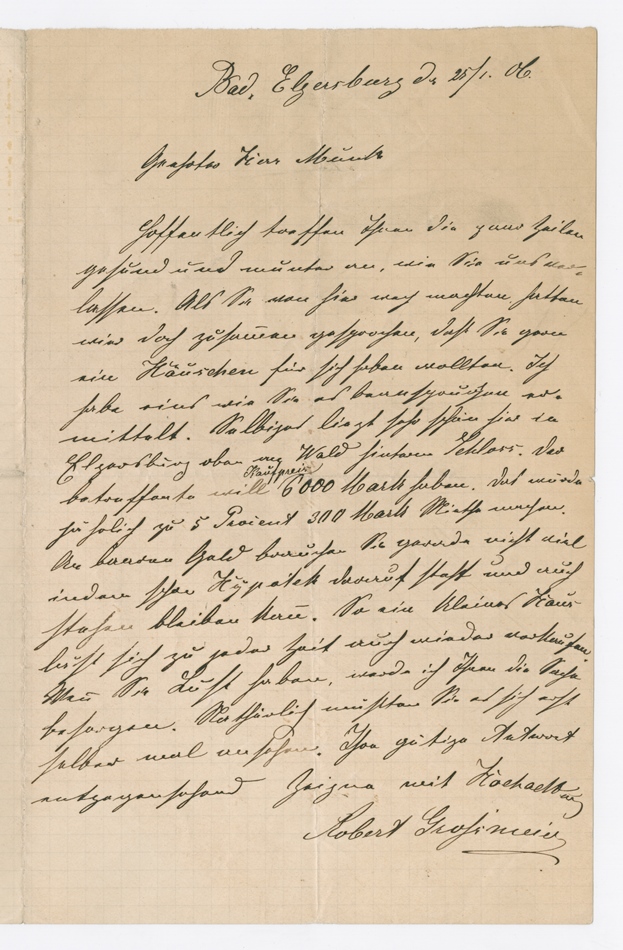 Bad. Elgersburg d. 25/1. 06.
Geehrter Herr Munk
Hoffentlich treffen Ihnen die paar Zeilen
gesund und munter an, wie Sie uns ver-
lassen. Als Sie von hier weg machten hatten
wir doch zusammen gesprochen, daß Sie gern
ein Häuschen für sich haben wollten. Ich
habe eins wie Sie es beanspruchen er-
mittelt. Selbiges liegt sehr schön hier in
Elgersburg oben am Wald hinterm Schloss. Der
betreffente will Kaufpreis 6000 Mark haben. Das würde
jährlich zu 5 Procent 300 Mark Miethe machen.
An baaren Geld brauchen Sie gerade nicht viel
indem schon Hypotek darauf steht und auch
stehen bleiben kann. So ein kleines Haus
läßt sich zu jeder Zeit auch wieder verkaufen.
Wenn Sie Lust haben, werde ich Ihnen die Sache
besorgen. Nathürlich müßten Sie es sich erst
selber mal ansehen. Ihre gütige Antwort
entgegensehend Zeigne mit Hochachtung
Robert Grosimeier